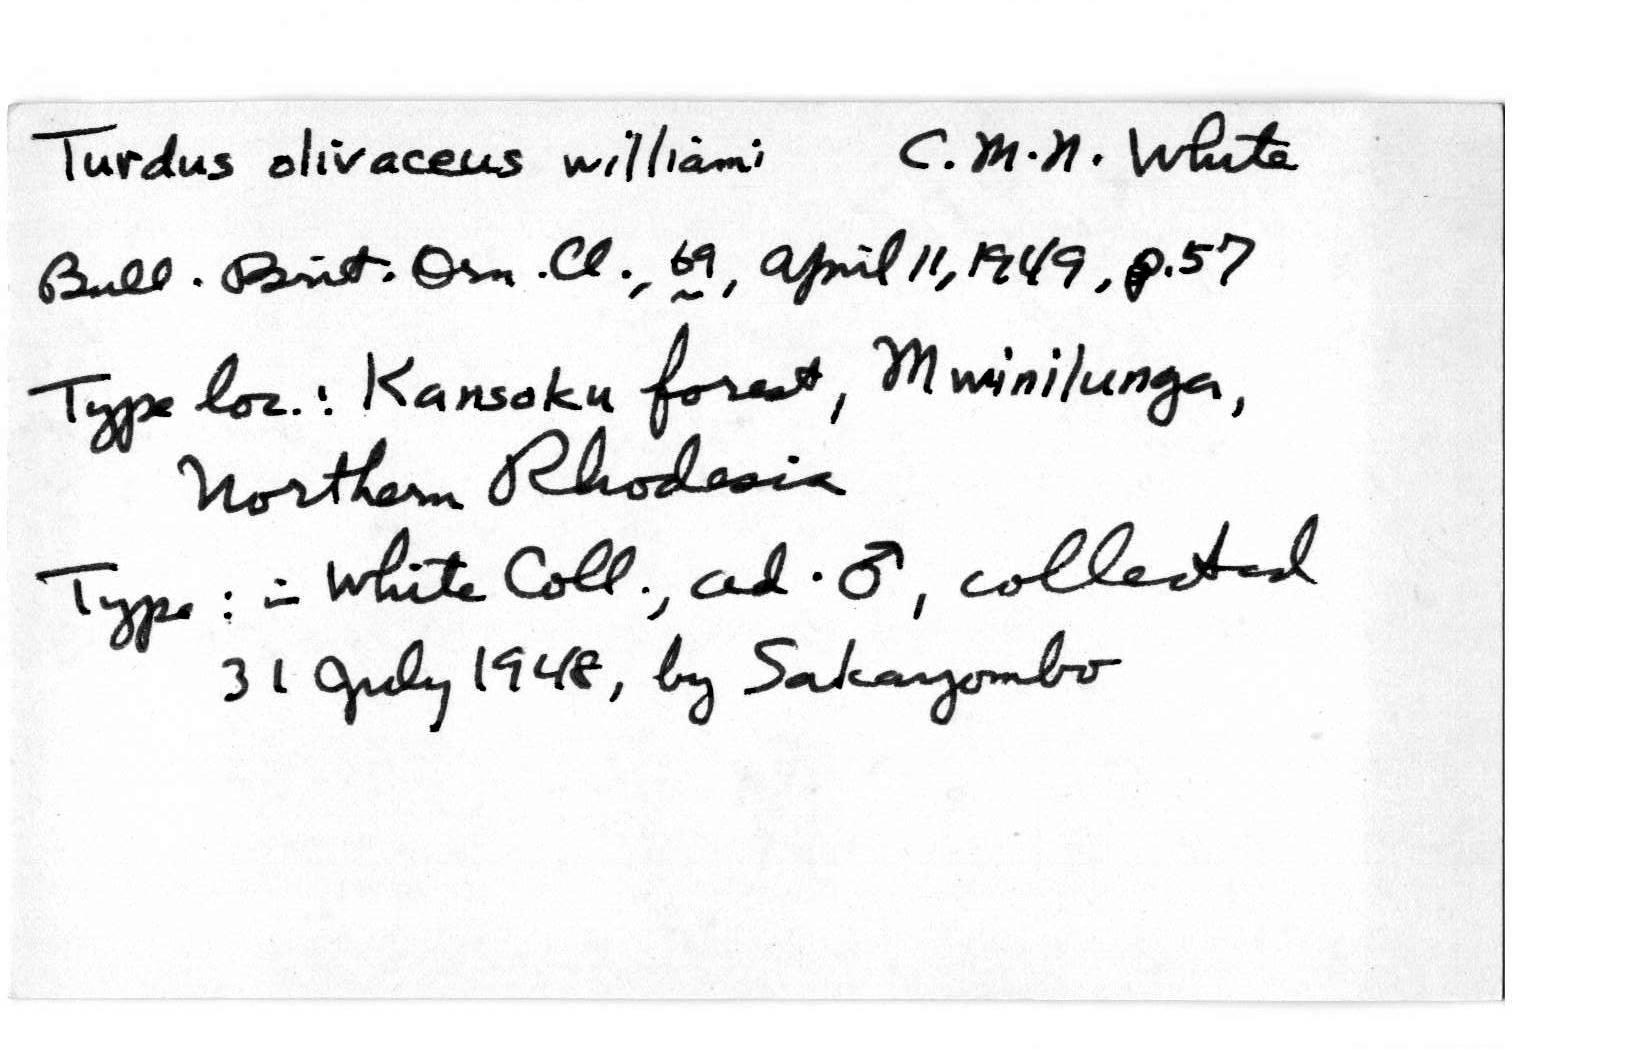 Turdus olivaceus williami C.M.N. White
Bull. Brit. Orn. Cl., 69, April 11, 1949, p.57
Type loc.: Kansoku forest, Mwinilunga,
Northern Rhodesia
Type: in White Coll., ad. ♂, collected
31 July 1948, by Sakayombo